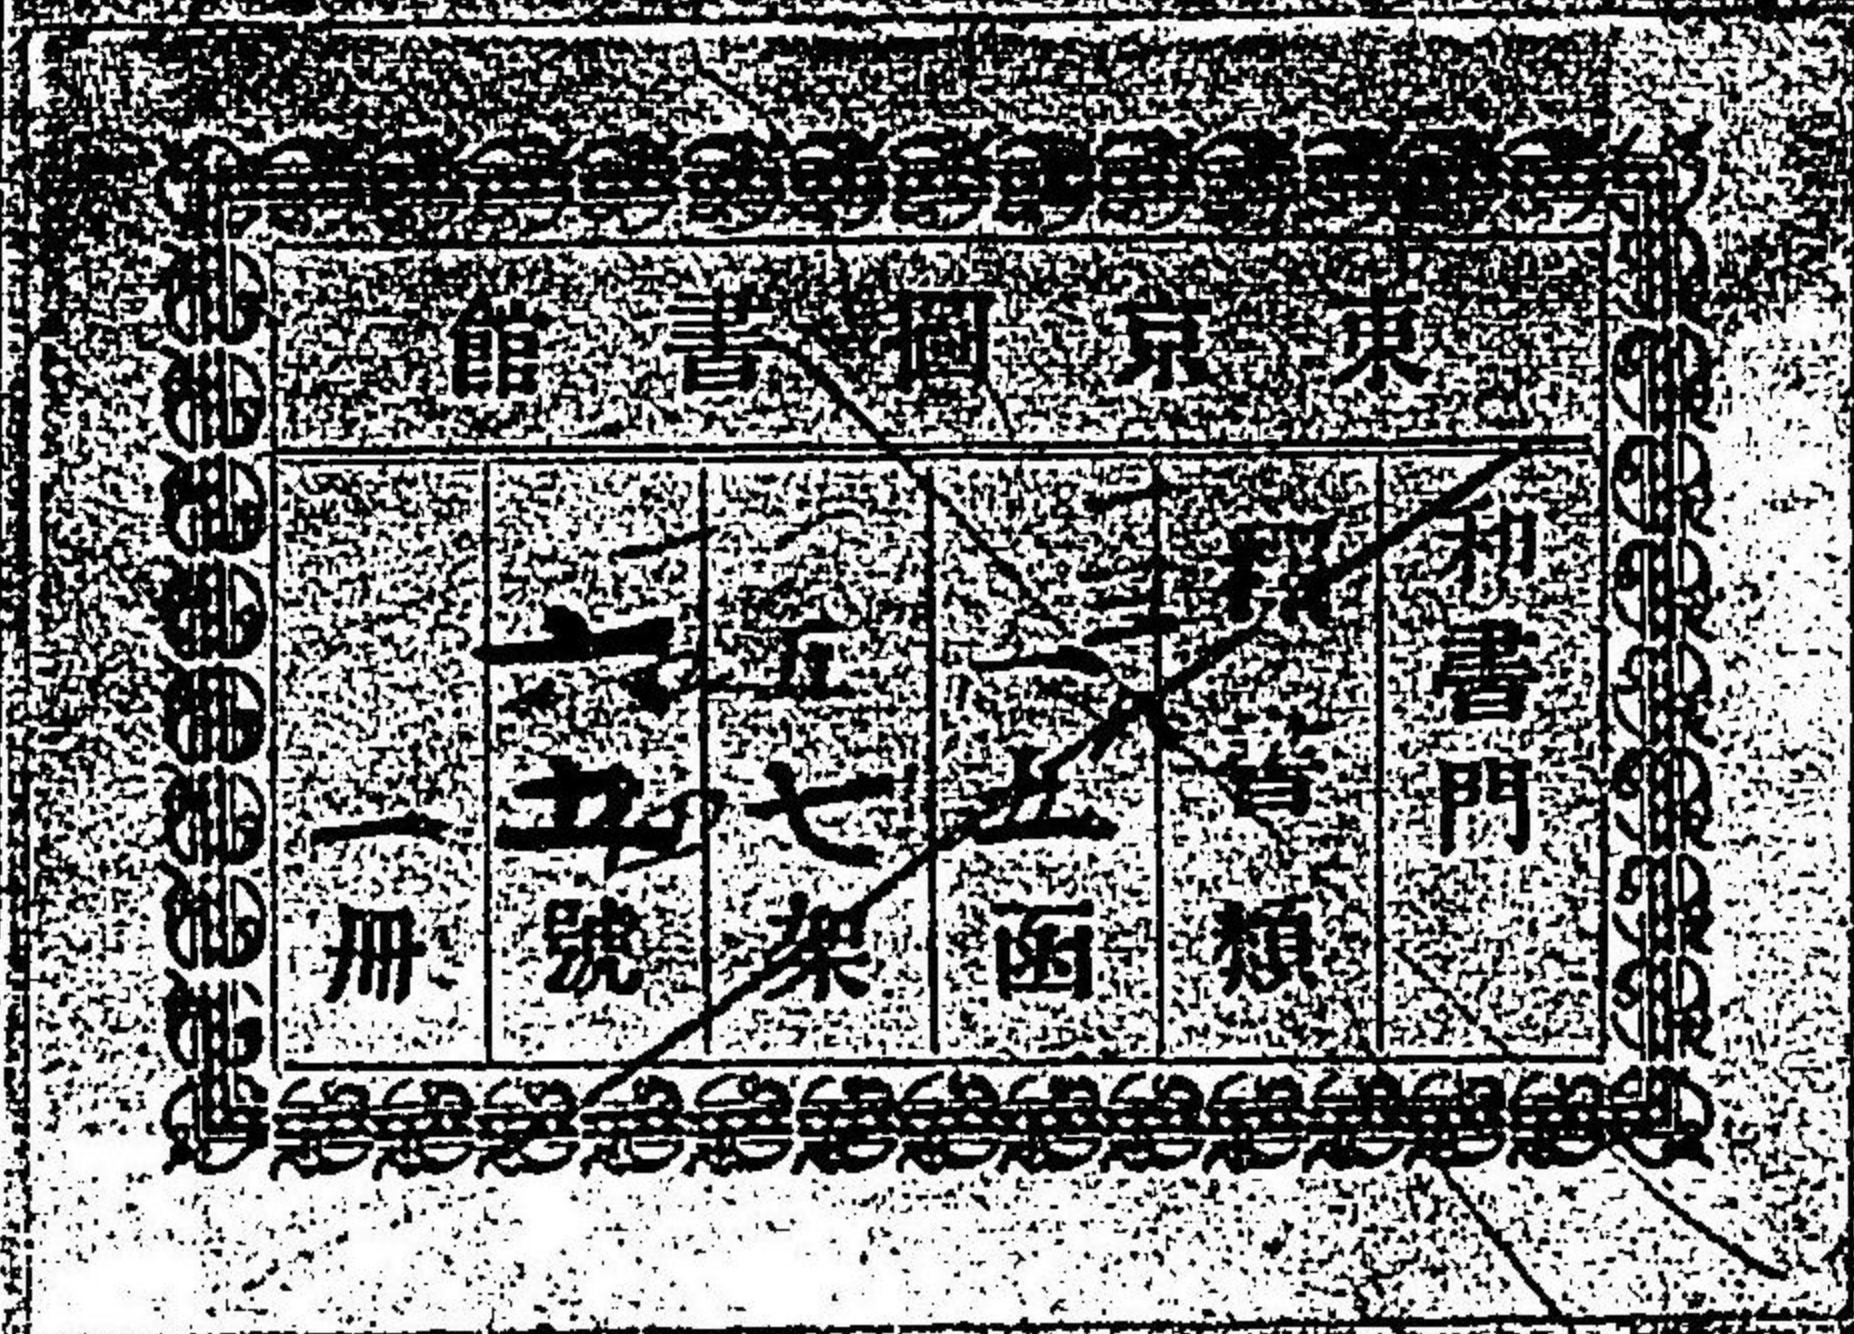 東京圖書館
和書門
類
五函
五七架
六五號
一冊